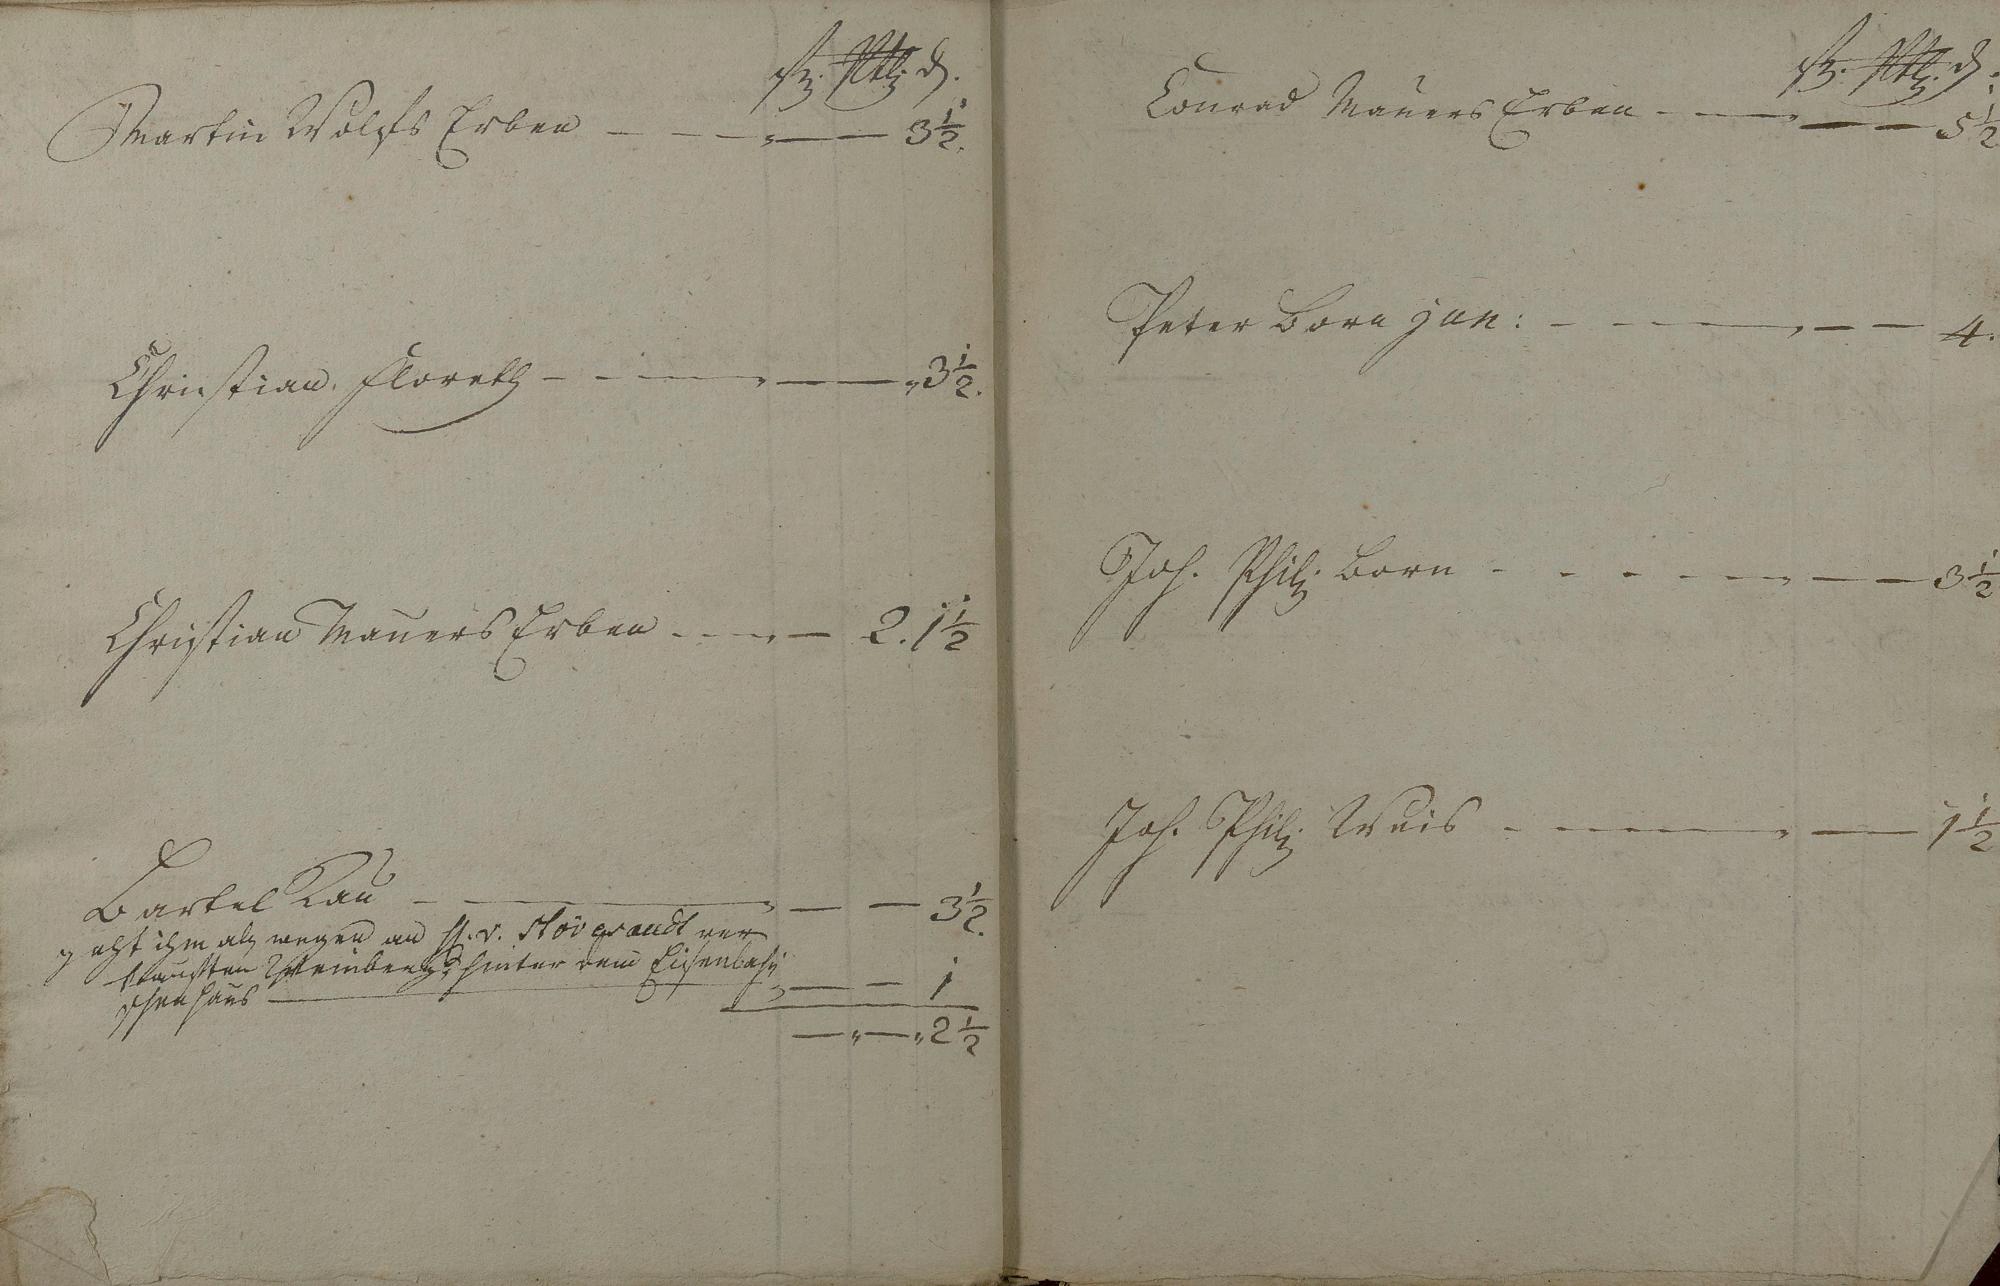 d.
Martin Wolfs Erben — — — " — — 3 1/2.
Christian Floreth — — — " — — " 3 1/2.
Christian Mauers Erben - - - " — 2. 1 1/2
Bartel Kau — — — " — — 3 1/2.
geht ihm ab wegen an H. v. ver
tauschten Weinberg hinter dem
haus — — " — — 1
— " — " 2 1/2
d.
Conrad Mauers Erben - — — " — — 5 1/2
Peter Born jun: — — — " — — 4.
Joh. Phil: Born - - - — — " — — 3 1/2
Joh. Phil: Weis - — — — " — 1 1/2